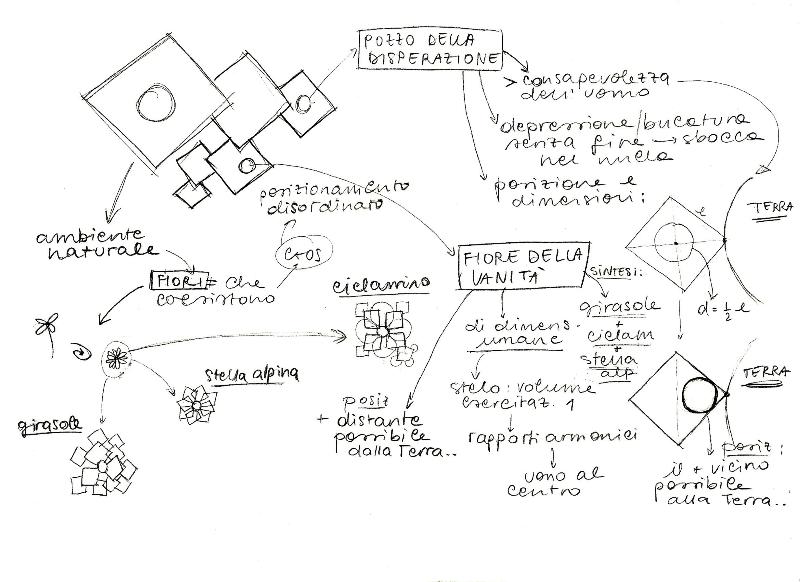 POZZO DELLA
DISPERAZIONE
> consapevolezza
dell'uomo
depressione/bucatura
senza fine → sbocca
nel nulla
posizione e
dimensioni:
l
TERRA
d=½ l
TERRA
posiz:
il + vicino
possibile
alla Terra..
posizionamento
disordinato
CAOS
ambiente
naturale
FIORI = che
coesistono
ciclamino
stella alpina
girasole
FIORE DELLA
VANITÀ
SINTESI:
girasole
+
ciclam
+
stella
alp
di dimens.
umane
stelo: volume
esercitaz. 1
rapporti armonici
uomo al
centro
posiz
+ distante
possibile
dalla Terra..